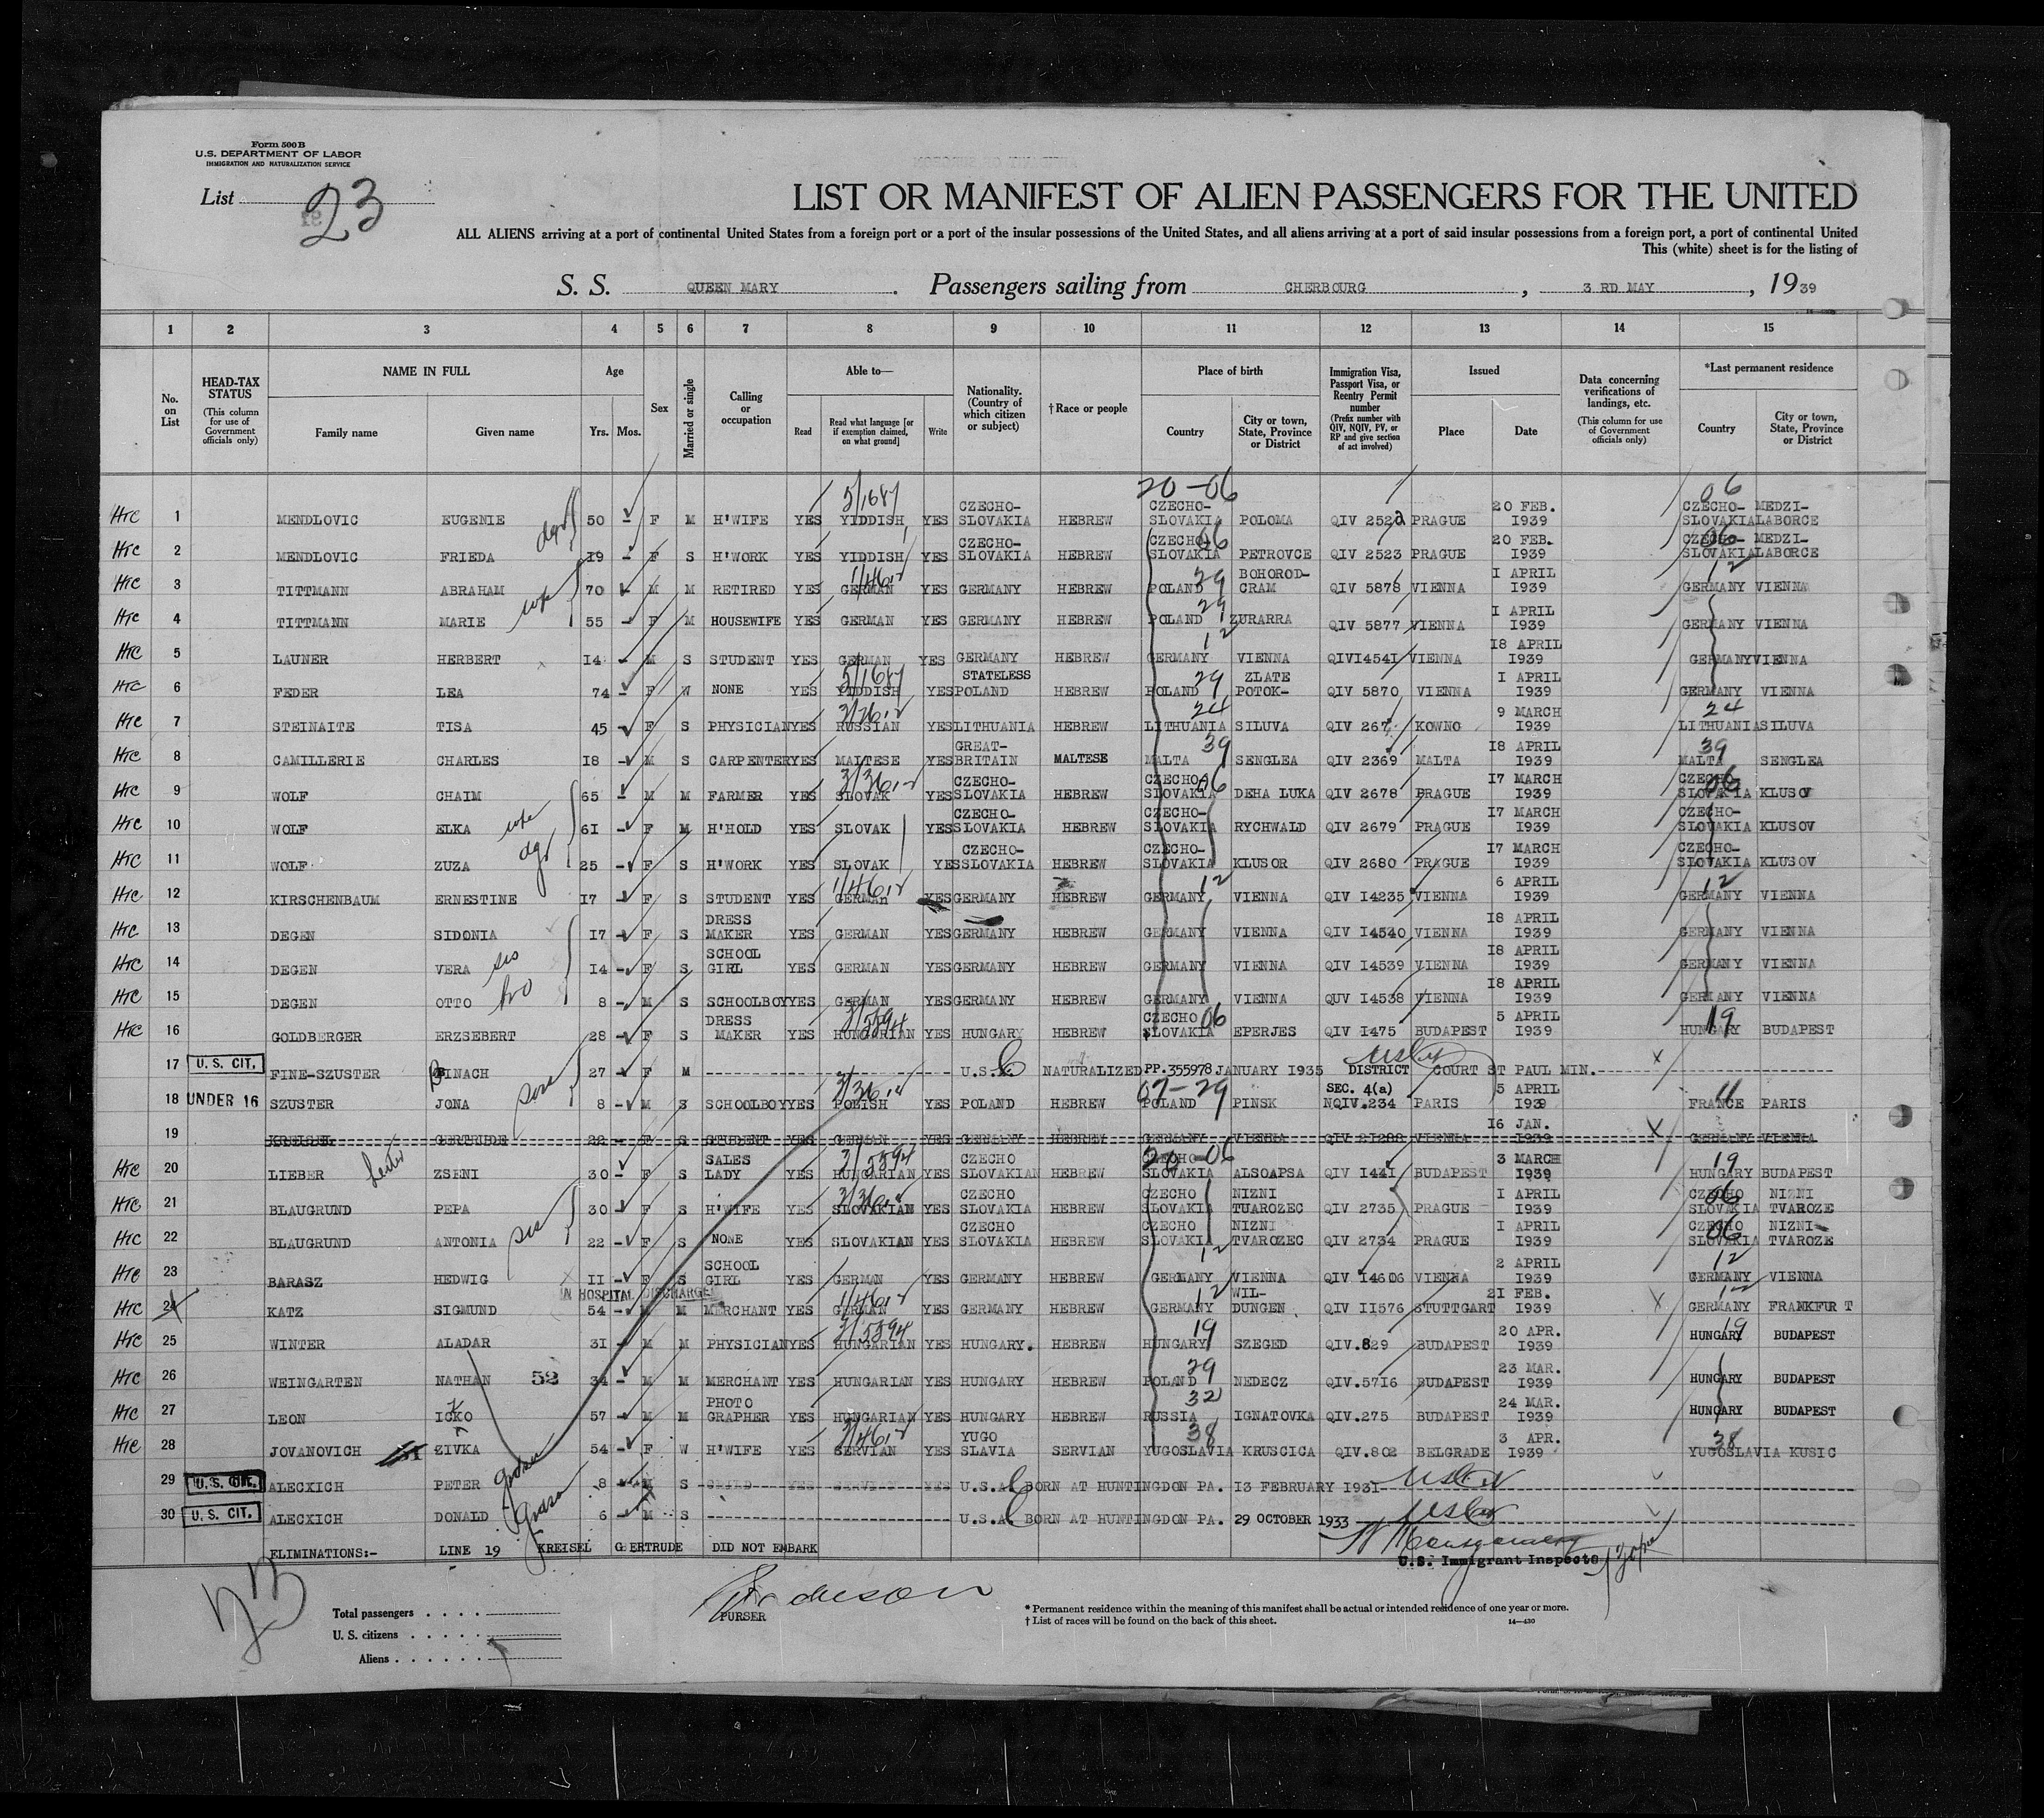 Form 500 B
U.S. DEPARTMENT OF LABOR
IMMIGRATION AND NATURALIZATION SERVICE
List 23
LIST OR MANIFEST OF ALIEN PASSENGERS FOR THE UNITED
ALL ALIENS arriving at a port of continental United States from a foreign port or a port of the insular possessions of the United States, and all aliens arriving at a port of said insular possessions from a foreign port, a port of continental United
This (white) sheet is for the listing of
S. S. QUEEN MARY. Passengers sailing from CHERBOURG, 3 RD MAY, 1939
1 2 3 4 5 6 7 8 9 10 11 12 13 14 15
No. on List
HEAD-TAX STATUS (This column for use of Government officials only)
NAME IN FULL Family name Given name
Age Yrs. Mos.
Sex
Married or single
Calling or occupation
Able to— Read Read what language [or if exemption claimed, on what ground] Write
Nationality. (Country of which citizen or subject)
† Race or people
Place of birth Country City or town, State, Province or District
Immigration Visa, Passport Visa, or Reentry Permit number (Prefix number with QIV, NQIV, PV, or RP and give section of act involved)
Issued Place Date
Data concerning verifications of landings, etc. (This column for use of Government officials only)
*Last permanent residence Country City or town, State, Province or District
5/1687 20-06 06
HTC 1 MENDLOVIC EUGENIE 50 - F M H'WIFE YES YIDDISH YES CZECHO-SLOVAKIA HEBREW CZECHO-SLOVAKIA POLOMA QIV 2522 PRAGUE 20 FEB. 1939 CZECHO-SLOVAKIA MEDZI-LABORCE
HTC 2 MENDLOVIC FRIEDA dgr 19 - F S H'WORK YES YIDDISH YES CZECHO-SLOVAKIA HEBREW CZECHO-SLOVAKIA 06 PETROVCE QIV 2523 PRAGUE 20 FEB. 1939 CZECHO-SLOVAKIA 06 MEDZI-LABORCE
HTC 3 TITTMANN ABRAHAM 70 - M M RETIRED YES GERMAN YES GERMANY HEBREW POLAND 29 BOHOROD-CRAM QIV 5878 VIENNA 1 APRIL 1939 GERMANY 12 VIENNA
HTC 4 TITTMANN MARIE wife 55 - F M HOUSEWIFE YES GERMAN YES GERMANY HEBREW POLAND 29 ZURARRA QIV 5877 VIENNA 1 APRIL 1939 GERMANY VIENNA
HTC 5 LAUNER HERBERT 14 - M S STUDENT YES GERMAN YES GERMANY HEBREW GERMANY 12 VIENNA QIV14541 VIENNA 18 APRIL 1939 GERMANY VIENNA
HTC 6 FEDER LEA 74 - F W NONE YES YIDDISH 5/1687 YES STATELESS POLAND HEBREW POLAND 29 ZLATE POTOK- QIV 5870 VIENNA 1 APRIL 1939 GERMANY VIENNA
HTC 7 STEINAITE TISA 45 - F S PHYSICIAN YES RUSSIAN YES LITHUANIA HEBREW LITHUANIA 24 SILUVA QIV 267 KOWNO 9 MARCH 1939 LITHUANIA 24 SILUVA
HTC 8 CAMILLERIE CHARLES 18 - M S CARPENTER YES MALTESE YES GREAT-BRITAIN MALTESE MALTA 39 SENGLEA QIV 2369 MALTA 18 APRIL 1939 MALTA 39 SENGLEA
HTC 9 WOLF CHAIM 65 - M M FARMER YES SLOVAK YES CZECHO-SLOVAKIA HEBREW CZECHO SLOVAKIA 06 DEHA LUKA QIV 2678 PRAGUE 17 MARCH 1939 CZECHO-SLOVAKIA 06 KLUSOV
HTC 10 WOLF ELKA wife 61 - F M H'HOLD YES SLOVAK YES CZECHO-SLOVAKIA HEBREW CZECHO-SLOVAKIA RYCHWALD QIV 2679 PRAGUE 17 MARCH 1939 CZECHO-SLOVAKIA KLUSOV
HTC 11 WOLF ZUZA dgr 25 - F S H'WORK YES SLOVAK YES CZECHO-SLOVAKIA HEBREW CZECHO-SLOVAKIA KLUSOR QIV 2680 PRAGUE 17 MARCH 1939 CZECHO-SLOVAKIA KLUSOV
HTC 12 KIRSCHENBAUM ERNESTINE 17 - F S STUDENT YES GERMAn YES GERMANY HEBREW GERMANY 12 VIENNA QIV 14235 VIENNA 6 APRIL 1939 GERMANY 12 VIENNA
HTC 13 DEGEN SIDONIA 17 - F S DRESS MAKER YES GERMAN YES GERMANY HEBREW GERMANY VIENNA QIV 14540 VIENNA 18 APRIL 1939 GERMANY VIENNA
HTC 14 DEGEN VERA sis 14 - F S SCHOOL GIRL YES GERMAN YES GERMANY HEBREW GERMANY VIENNA QIV 14539 VIENNA 18 APRIL 1939 GERMANY VIENNA
HTC 15 DEGEN OTTO bro 8 - M S SCHOOLBOY YES GERMAN YES GERMANY HEBREW GERMANY VIENNA QUV 14538 VIENNA 18 APRIL 1939 GERMANY VIENNA
HTC 16 GOLDBERGER ERZSEBERT 28 - F S DRESS MAKER YES HUNGARIAN YES HUNGARY HEBREW CZECHO SLOVAKIA 06 EPERJES QIV 1475 BUDAPEST 5 APRIL 1939 HUNGARY 19 BUDAPEST
17 U. S. CIT. FINE-SZUSTER PINACH 27 - F M U.S.A. NATURALIZED PP.355978 JANUARY 1935 DISTRICT COURT ST PAUL MIN.
18 UNDER 16 SZUSTER JONA 8 - M S SCHOOLBOY YES POLISH YES POLAND HEBREW POLAND 07-29 PINSK SEC. 4(a) NQIV.234 PARIS 5 APRIL 1939 FRANCE 11 PARIS
19 KREISEL GERTRUDE 22 - F S STUDENT YES GERMAN YES GERMANY HEBREW GERMANY VIENNA QIV 21288 VIENNA 16 JAN. 1939 GERMANY VIENNA
HTC 20 LIEBER ZSENI 30 - F S SALES LADY YES HUNGARIAN YES CZECHO SLOVAKIAN HEBREW CZECHO-SLOVAKIA 20-06 ALSOAPSA QIV 1441 BUDAPEST 3 MARCH 1939 HUNGARY 19 BUDAPEST
HTC 21 BLAUGRUND PEPA 30 - F S H'WIFE YES SLOVAKIAN YES CZECHO SLOVAKIA HEBREW CZECHO SLOVAKIA NIZNI TUAROZEC QIV 2735 PRAGUE 1 APRIL 1939 CZECHO SLOVAKIA 06 NIZNI TVAROZE
HTC 22 BLAUGRUND ANTONIA sis 22 - F S NONE YES SLOVAKIAN YES CZECHO SLOVAKIA HEBREW CZECHO SLOVAKIA NIZNI TVAROZEC QIV 2734 PRAGUE 1 APRIL 1939 CZECHO SLOVAKIA 06 NIZNI- TVAROZE
HTC 23 BARASZ HEDWIG 11 - F S SCHOOL GIRL YES GERMAN YES GERMANY HEBREW GERMANY 12 VIENNA QIV 14606 VIENNA 2 APRIL 1939 GERMANY 12 VIENNA
IN HOSPITAL DISCHARGED
HTC 24 KATZ SIGMUND 54 - M M MERCHANT YES GERMAN YES GERMANY HEBREW GERMANY 12 WIL-DUNGEN QIV 11576 STUTTGART 21 FEB. 1939 GERMANY 12 FRANKFUR T
HTC 25 WINTER ALADAR 31 - M M PHYSICIAN YES HUNGARIAN YES HUNGARY. HEBREW HUNGARY 19 SZEGED QIV.829 BUDAPEST 20 APR. 1939 HUNGARY 19 BUDAPEST
HTC 26 WEINGARTEN NATHAN 52 34 - M M MERCHANT YES HUNGARIAN YES HUNGARY HEBREW POLAND 29 NEDECZ QIV.5716 BUDAPEST 23 MAR. 1939 HUNGARY BUDAPEST
HTC 27 LEON ICKO 57 - M M PHOTO GRAPHER YES HUNGARIAN YES HUNGARY HEBREW RUSSIA 32 IGNATOVKA QIV.275 BUDAPEST 24 MAR. 1939 HUNGARY BUDAPEST
HTC 28 JOVANOVICH ZIVKA 54 - F W H'WIFE YES SERVIAN YES YUGO SLAVIA SERVIAN YUGOSLAVIA 38 KRUSCICA QIV.802 BELGRADE 3 APR. 1939 YUGOSLAVIA 38 KUSIC
29 U. S. CIT. ALECXICH PETER grdson 8 M S U.S.A. BORN AT HUNTINGDON PA. 13 FEBRUARY 1931
30 U. S. CIT. ALECXICH DONALD grdson 6 M S U.S.A. BORN AT HUNTINGDON PA. 29 OCTOBER 1933
ELIMINATIONS:- LINE 19 KREISEL GERTRUDE DID NOT EMBARK
U.S. Immigrant Inspector
23
PURSER
Total passengers
U. S. citizens
Aliens
* Permanent residence within the meaning of this manifest shall be actual or intended residence of one year or more.
† List of races will be found on the back of this sheet.
14—430